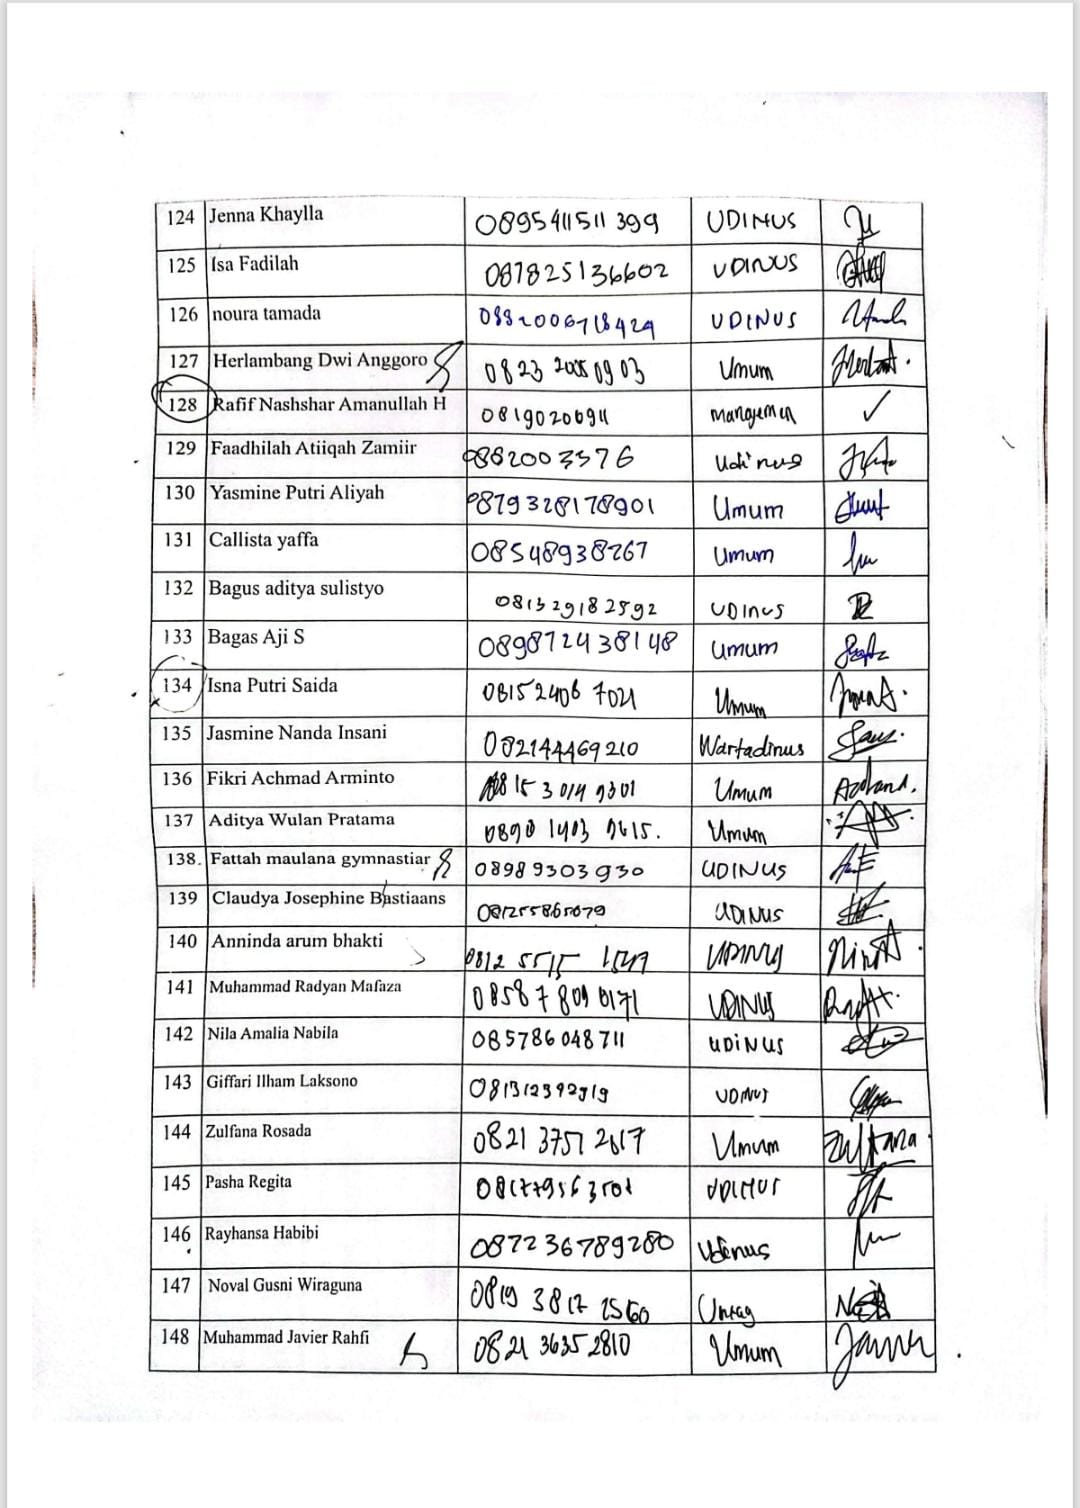 124 Jenna Khaylla 0895411511399 UDINUS
125 Isa Fadilah 087825136602 UDINUS
126 noura tamada UDINUS
127 Herlambang Dwi Anggoro Umum
128 Rafif Nashshar Amanullah H manajemen ✓
129 Faadhilah Atiiqah Zamiir 0882003576 Udinus
130 Yasmine Putri Aliyah 0879328178901 Umum
131 Callista yaffa 08548938267 Umum
132 Bagus aditya sulistyo 081329182592 UDINUS
133 Bagas Aji S 089872438148 Umum
134 Isna Putri Saida 08152406 7021 Umum
135 Jasmine Nanda Insani 082144469210 Wartadinus
136 Fikri Achmad Arminto Umum
137 Aditya Wulan Pratama Umum
138. Fattah maulana gymnastiar 08989303930 UDINUS
139 Claudya Josephine Bastiaans UDINUS
140 Anninda arum bhakti UDINUS
141 Muhammad Radyan Mafaza UDINUS
142 Nila Amalia Nabila 085786048711 UDiNUS
143 Giffari Ilham Laksono UDINUS
144 Zulfana Rosada 0821 3757 2617 Umum Zulfana
145 Pasha Regita UDINUS
146 Rayhansa Habibi 087236789280 Udenus
147 Noval Gusni Wiraguna Untag
148 Muhammad Javier Rahfi 0821 3635 2810 Umum